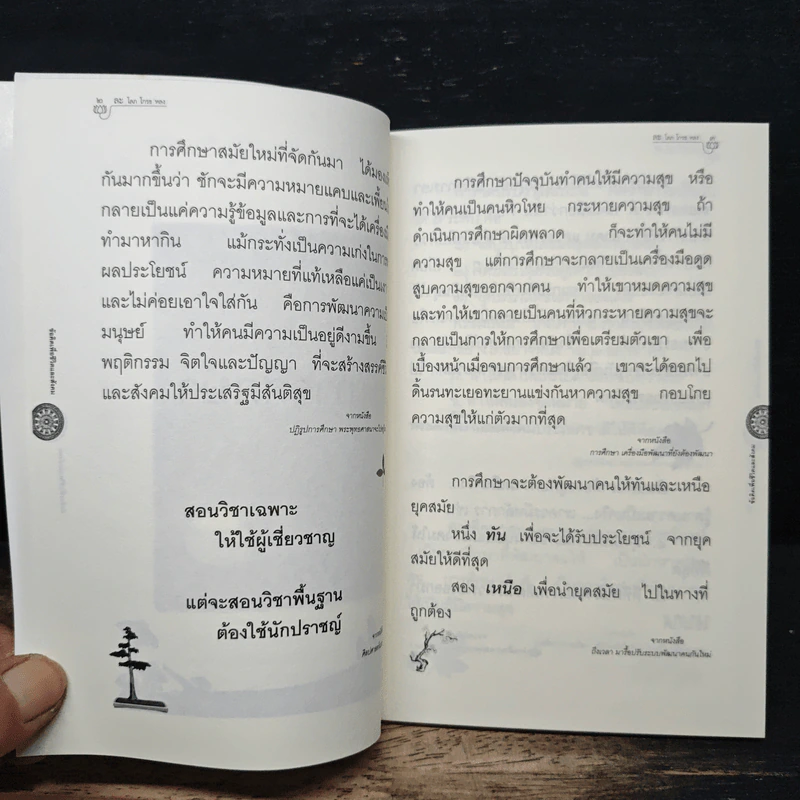 ๒ ละ โลภ โกรธ หลง
การศึกษาสมัยใหม่ที่จัดกันมา ได้มอง
กันมากขึ้นว่า ชักจะมีความหมายแคบและเพี้ยน
กลายเป็นแค่ความรู้ข้อมูลและการที่จะได้เครื่อง
ทำมาหากิน แม้กระทั่งเป็นความเก่งในการ
ผลประโยชน์ ความหมายที่แท้เหลือแค่เป็น
และไม่ค่อยเอาใจใส่กัน คือการพัฒนาความ
มนุษย์ ทำให้คนมีความเป็นอยู่ดีงามขึ้น
พฤติกรรม จิตใจและปัญญา ที่จะสร้างสรรค์
และสังคมให้ประเสริฐมีสันติสุข
จากหนังสือ
ปฏิรูปการศึกษา พระพุทธศาสนา
สอนวิชาเฉพาะ
ให้ใช้ผู้เชี่ยวชาญ
แต่จะสอนวิชาพื้นฐาน
ต้องใช้นักปราชญ์
ข้อคิดเพื่อชีวิตและสังคม
ละ โลภ โกรธ หลง ๓
การศึกษาปัจจุบันทำคนให้มีความสุข หรือ
ทำให้คนเป็นคนหิวโหย กระหายความสุข ถ้า
ดำเนินการศึกษาผิดพลาด ก็จะทำให้คนไม่มี
ความสุข แต่การศึกษาจะกลายเป็นเครื่องมือดูด
สูบความสุขออกจากคน ทำให้เขาหมดความสุข
และทำให้เขากลายเป็นคนที่หิวกระหายความสุขจะ
กลายเป็นการให้การศึกษาเพื่อเตรียมตัวเขา เพื่อ
เบื้องหน้าเมื่อจบการศึกษาแล้ว เขาจะได้ออกไป
ดิ้นรนทะเยอทะยานแข่งกันหาความสุข กอบโกย
ความสุขให้แก่ตัวมากที่สุด
จากหนังสือ
การศึกษา เครื่องมือพัฒนาที่ยังต้องพัฒนา
การศึกษาจะต้องพัฒนาคนให้ทันและเหนือ
ยุคสมัย
หนึ่ง ทัน เพื่อจะได้รับประโยชน์ จากยุค
สมัยให้ดีที่สุด
สอง เหนือ เพื่อนำยุคสมัย ไปในทางที่
ถูกต้อง
จากหนังสือ
ถึงเวลา มารื้อปรับระบบพัฒนาคนกันใหม่
ข้อคิดเพื่อชีวิตและสังคม